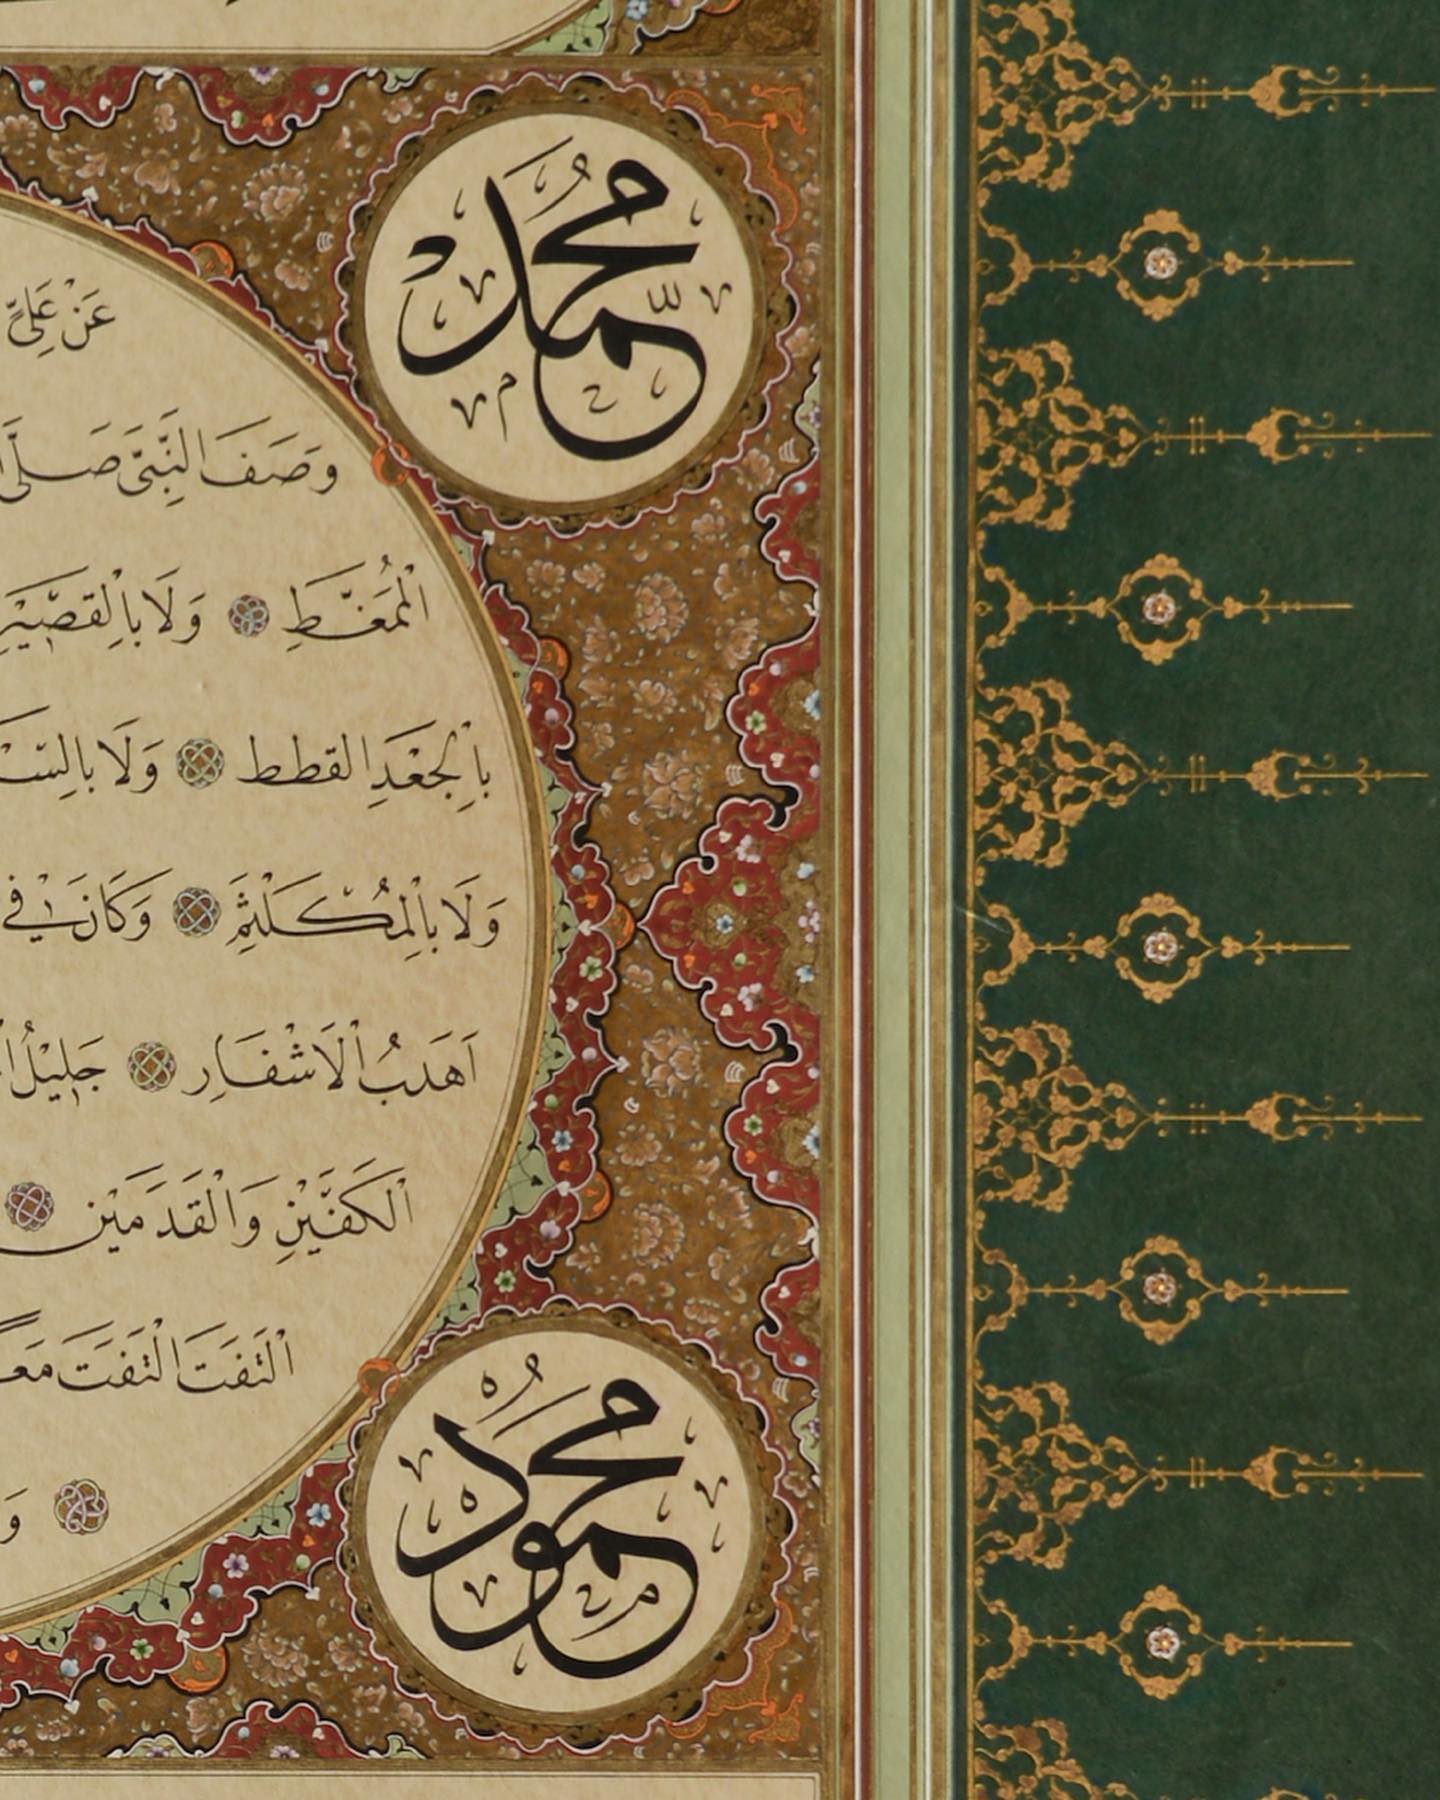 مُحَمَّد
عَنْ عَلِيٍّ
وَصَفَ النَّبِيَّ صَلَّى
الْمُمَّغَّطِ ۞ وَلَا بِالْقَصِيرِ
بِالْجَعْدِ القطط ۞ وَلَا بِالسَّبْـ
وَلَا بِالْمُكَلْثَمِ ۞ وَكَانَ فِي
اَهْدَبُ الْاَشْفَارِ ۞ جَلِيلُ
الْكَفَّيْنِ وَالْقَدَمَيْنِ ۞
الْتَفَتَ الْتَفَتَ مَعًا
وَ
مَحْمُودٌ